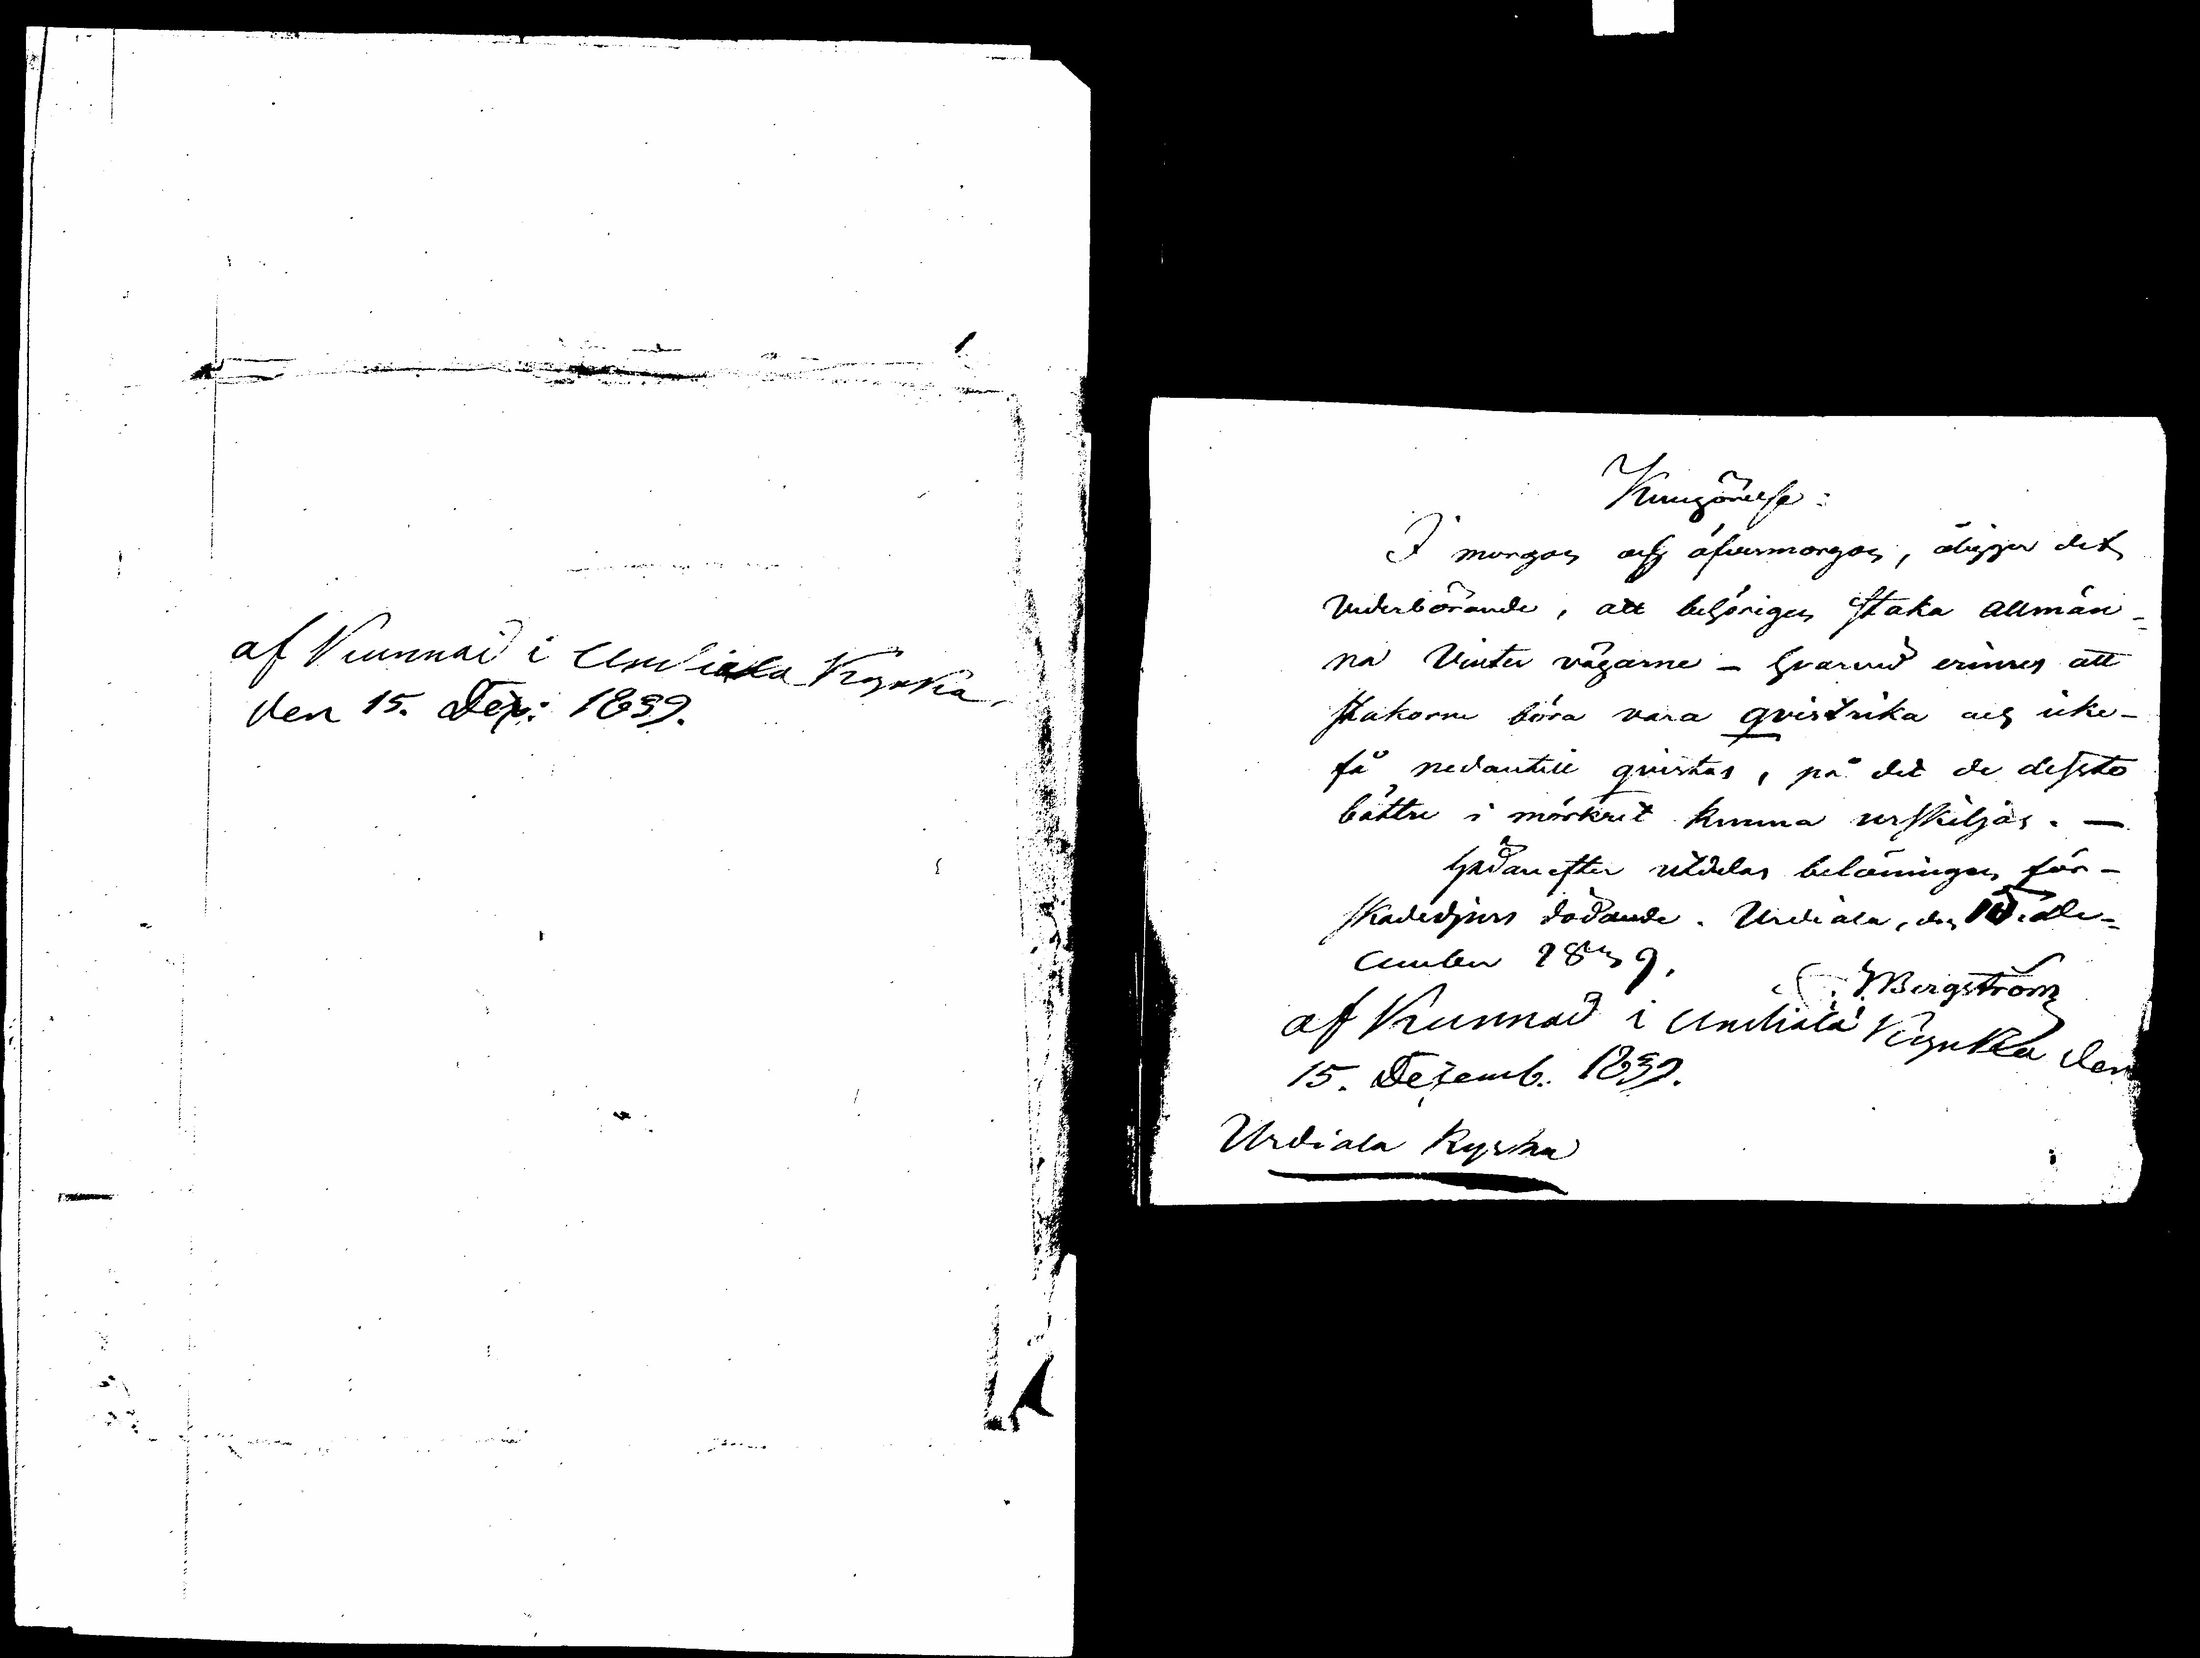 af Kunnad i Urdiala Kyrka
den 15. Dez: 1839.
Kungörelse:
I morgon och öfvermorgon, åligger det
vederbörande, att behörigen staka allmän-
na Vinter vägarne – hvarvid erinres att
stakorne böra vara qvistrika och icke
få nedantill qvistas, på det de dessto
bättre i mörkret kunna urskiljas. —
Hädanefter utdelas belöningen för
skadedjurs dödande. Urdiala, den De-
cember 1839.
Bergström
af Kunnad i Urdiala Kyrka den
15. Dezemb. 1839.
Urdiala Kyrka